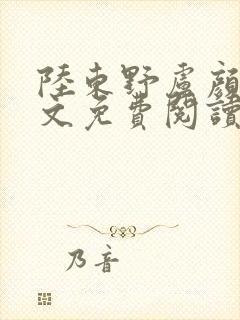 陸東野盧顔
文免費閱讀
乃音